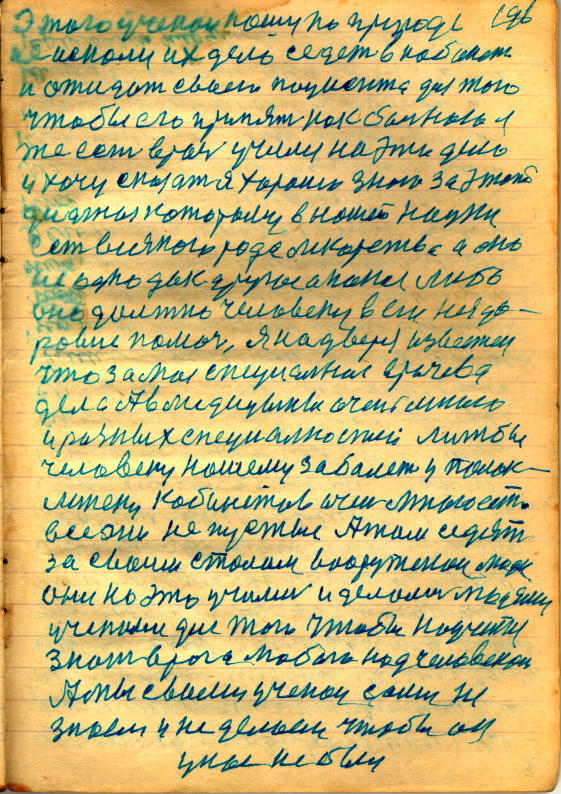 Этого ученои пошу по природе 196
не исполи их дело седеть в кабинете
и ожидат своего поциента для того
чтобы его принят как больного я
же сам врач учили на эти дело
и хочу сказат я хорошо знаю за этого
диагноз которому в нашей науки
ест всяпого рода лекарства а оно
не одно дак другое а какое либо
оно должно человеку в его нездо-
ровие помоч, я на дверя известен
что за мое специалная врачева
дела А в медицынны очен много
и разных специалностей лиж бы
человеку нашему забалет у полик-
линику кобинетов очен много ест
все они не пустые А там седят
за своим столам вооруженои люди
они на это учили и делали людями
ученами для того чтобы научится
знат врага любога над человеком
А мы своему ученои сами не
знаем и не делаем чтобы он
у нас не был